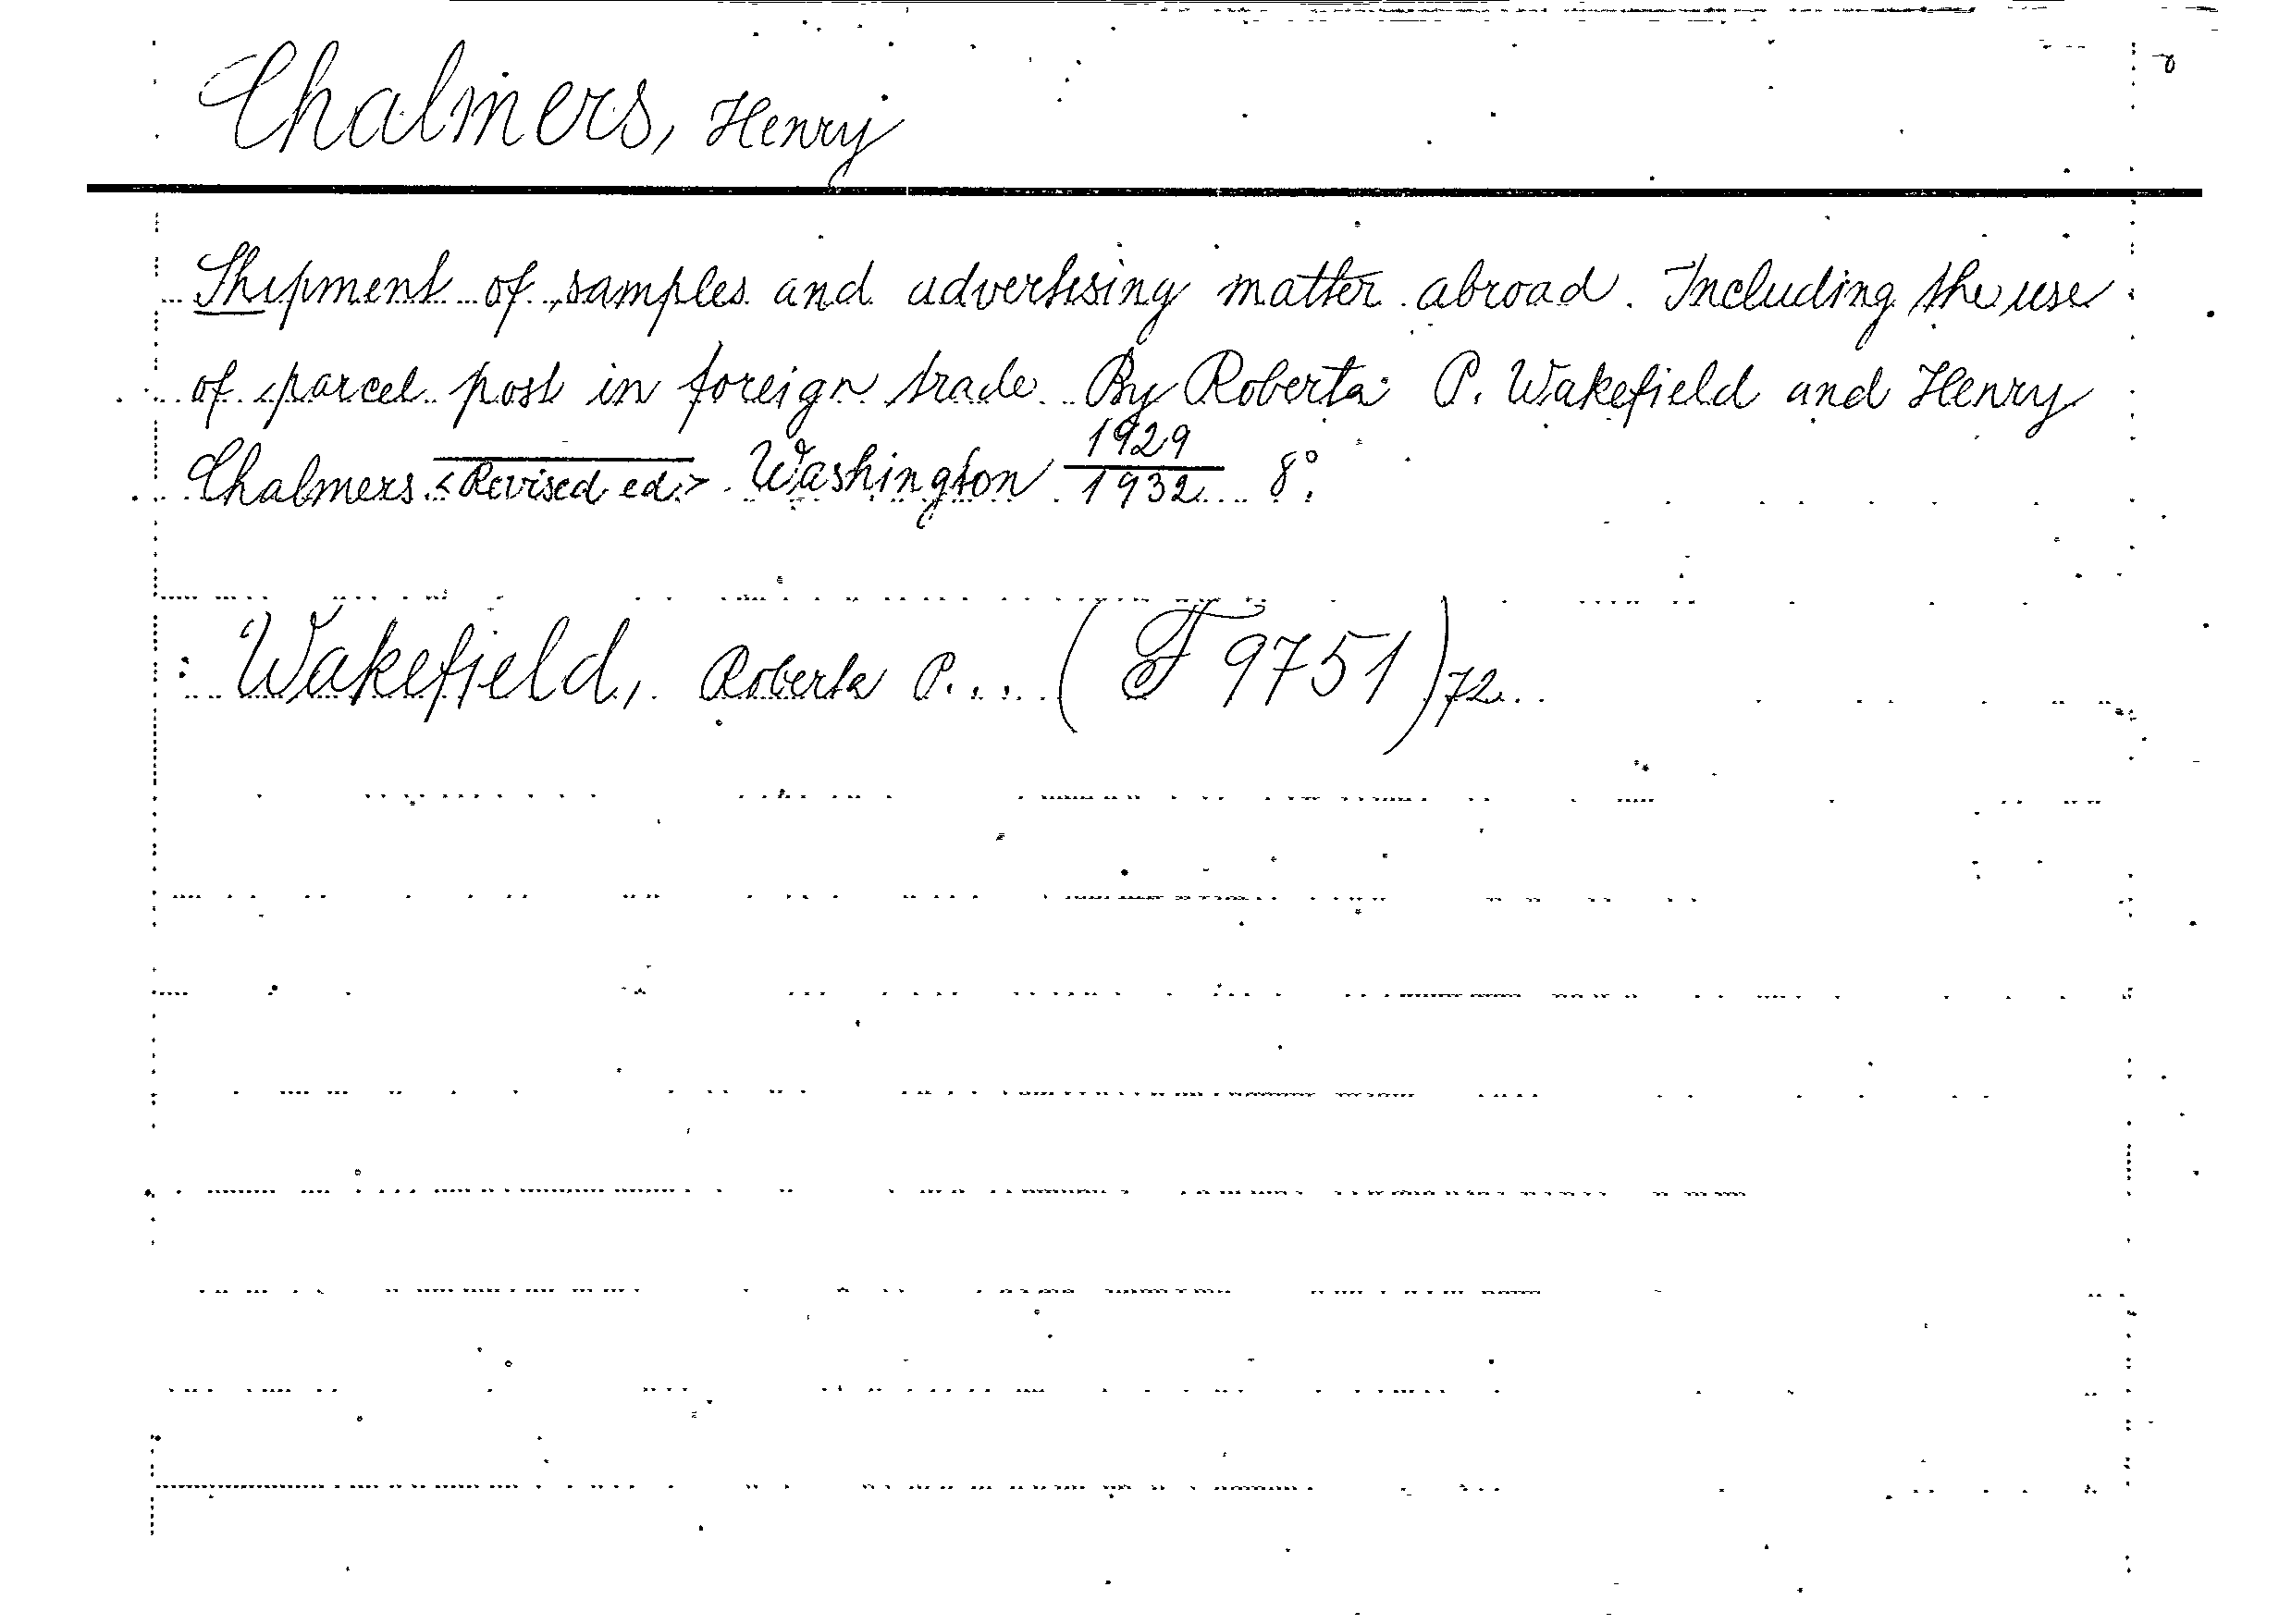 Chalmers, Henry
Shipment of samples and advertising matter abroad. Including the use
of parcel post in foreign trade. By Roberta P. Wakefield and Henry
Chalmers <Revised ed.> Washington 1929/1932 8°.
Wakefield, Roberta P. ... (F 9751) 72